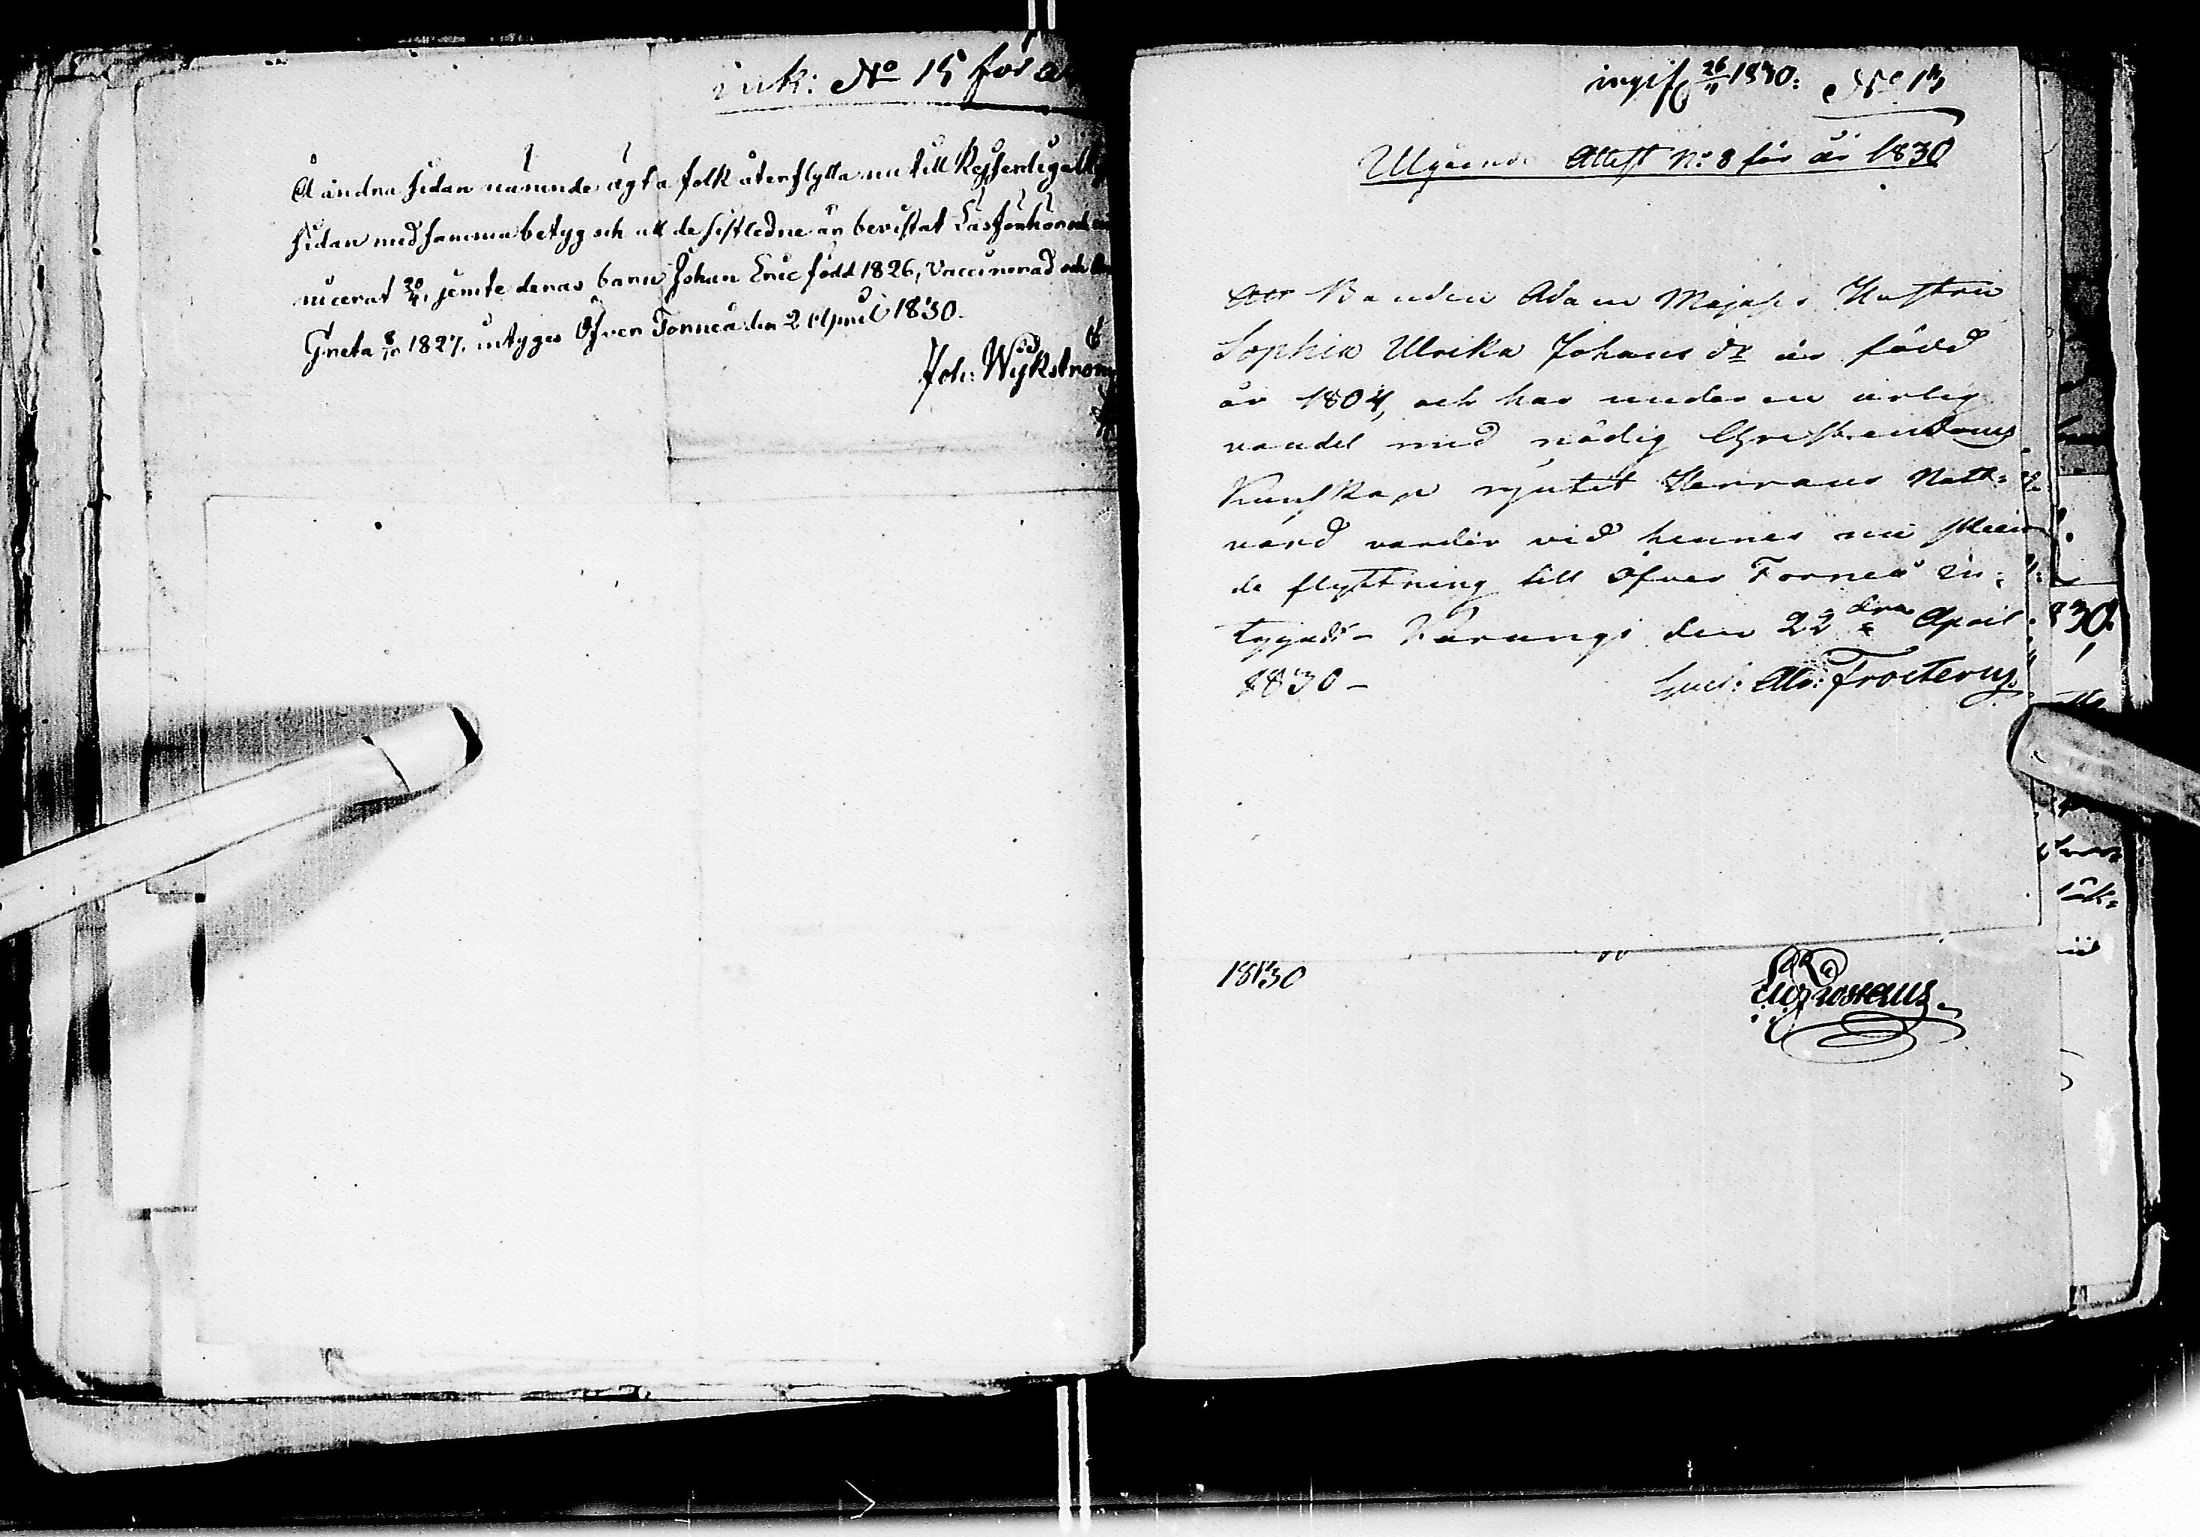 ink: No 15 för
Å andra sidan nämnde ägta folk återflytta nu till
sidan med samma betyg och att de sistledne år bevistat Läsförhör och
nicerat 20/4, jemte deras barn Johan Eric född 1826, Vaccinerad och
Greta 8/10 1827, intygas Öfver Torneå den 2 April 1830.
Joh: Wijkström
ingif 26/4 1830. No 13
Utgående Attest No 8 för år 1830
Att Bonden Adam Hustru
Sophia Ulrika Johans dr är född
år 1804, och har under en ärlig
vandel med nödig Christendoms
Kunskap njutit Herrans Natt=
vard varder vid hennes nu skeen
de flyttning till Öfver Torneå in=
tygadt – Karungi den 22 dra April
1830 – Gust: Ad: Frosterus
1830
830.